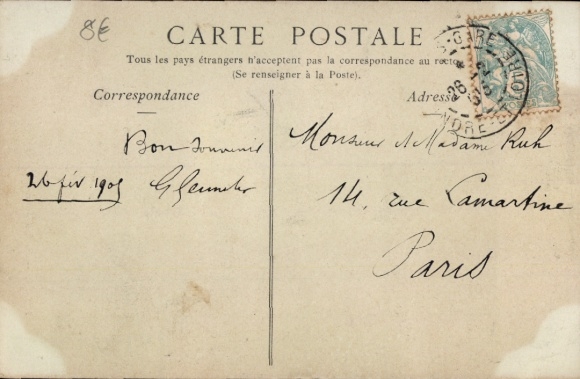 8€
CARTE POSTALE
Tous les pays étrangers n'acceptent pas la correspondance au recto
(Se renseigner à la Poste).
Correspondance
Adresse
GARE
INDRE-ET-LOIRE
26
Bon Souvenir
26 fév 1905
Monsieur et Madame
14, rue Lamartine
Paris